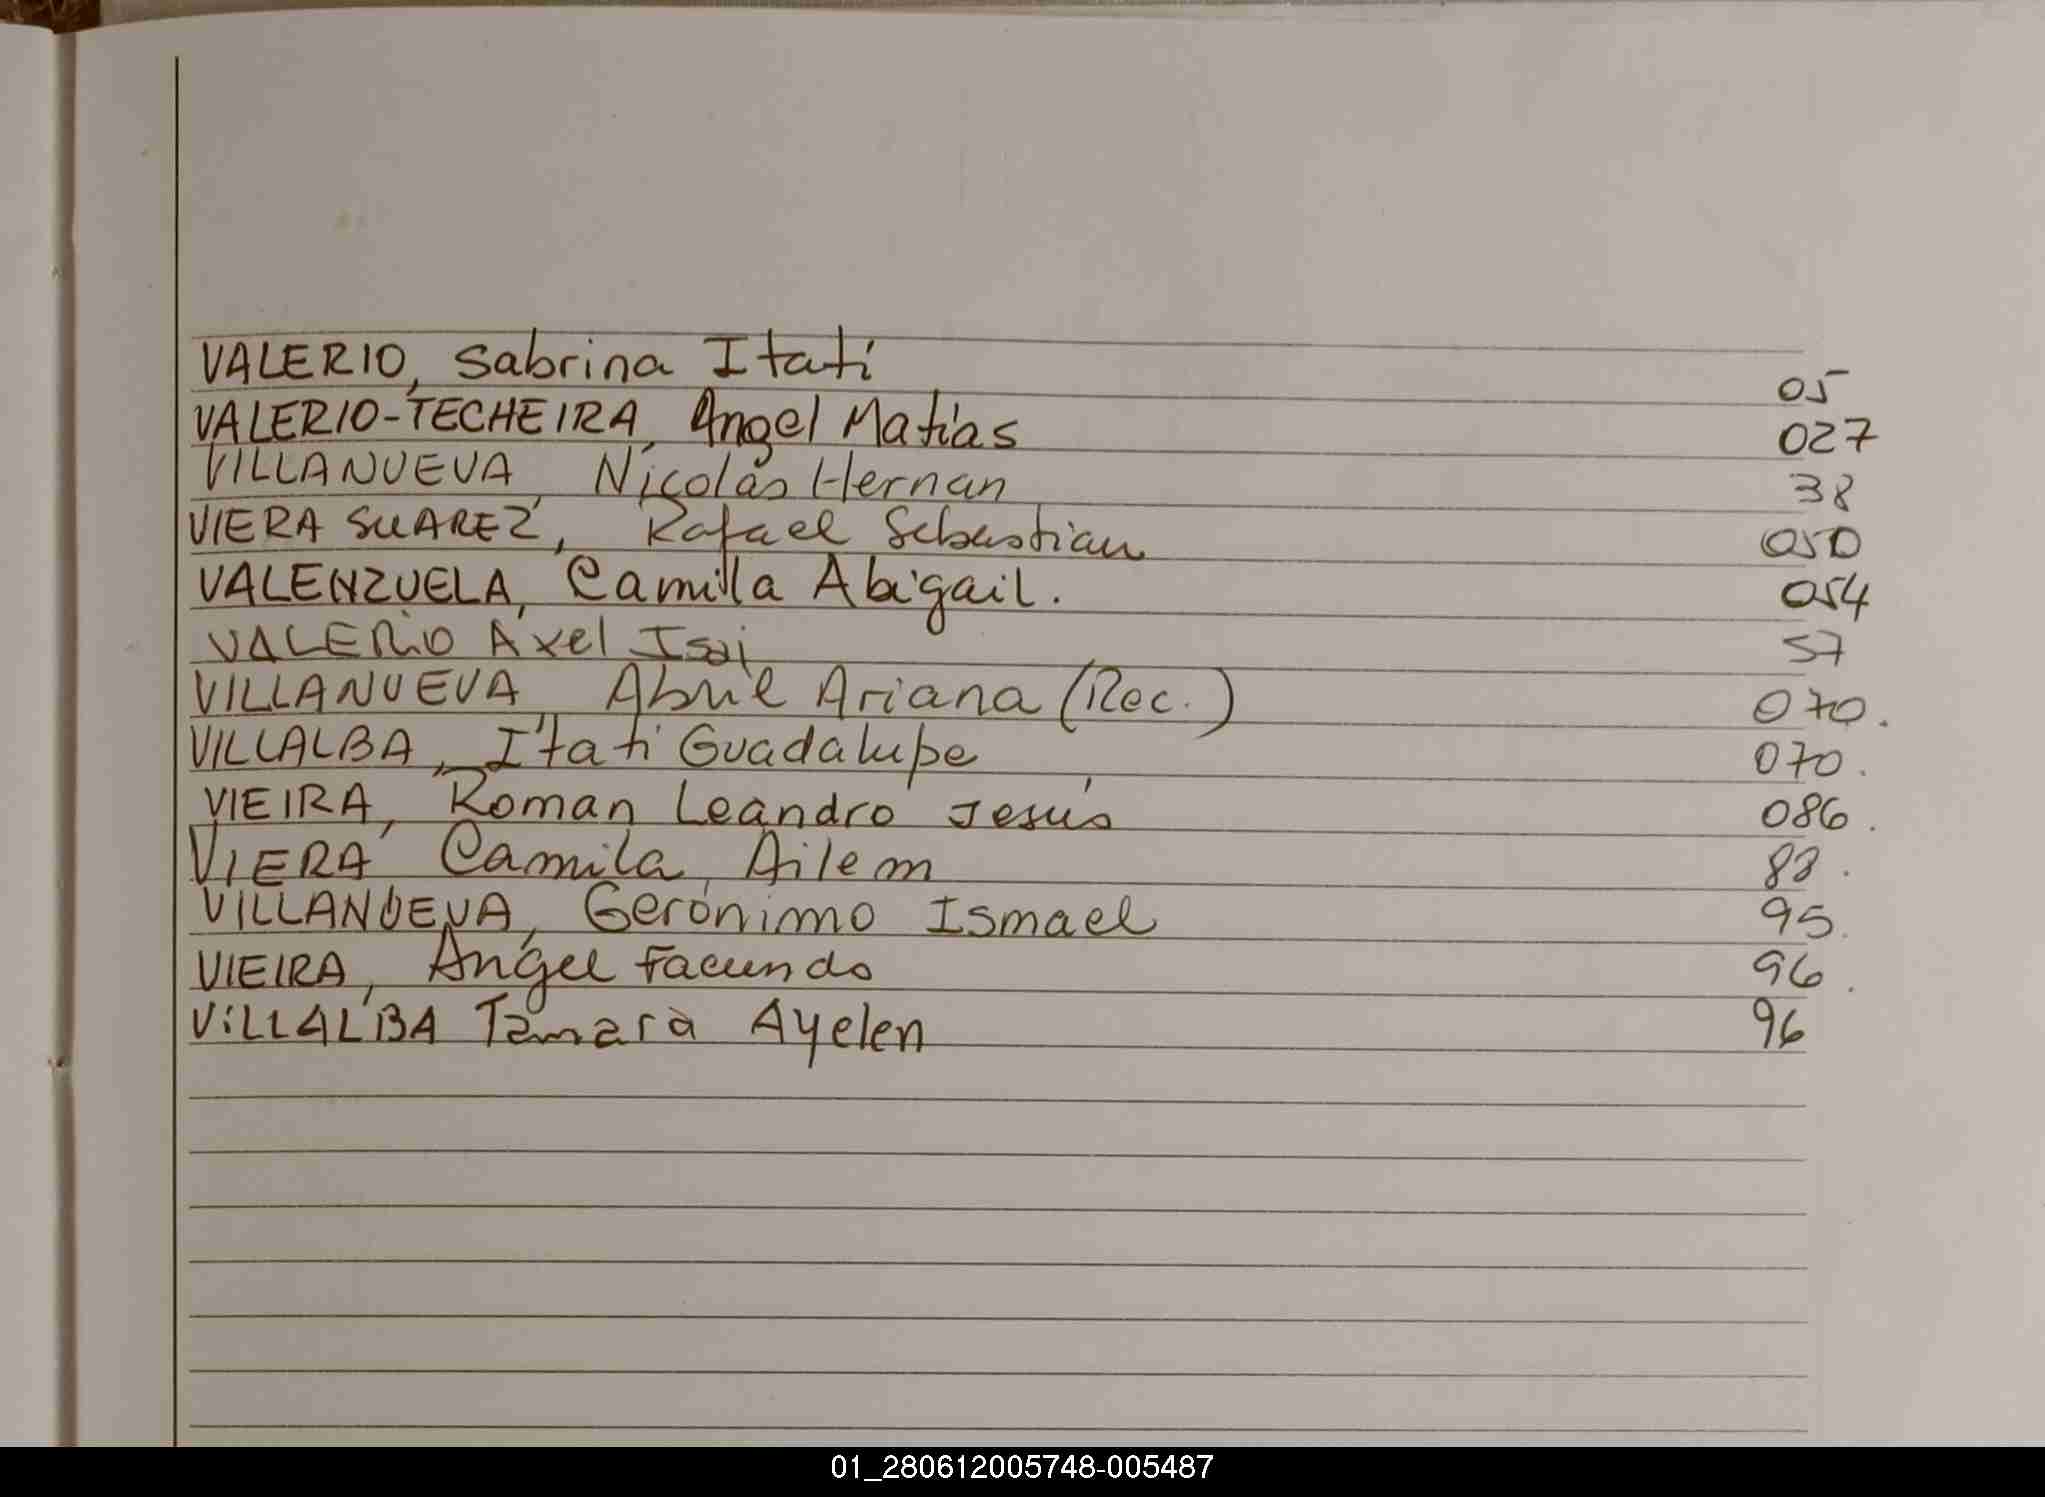 VALERIO, Sabrina Itatí 05
VALERIO-TECHEIRA, Angel Matías 027
VILLANUEVA, Nicolás Hernan 38
VIERA SUAREZ, Rafael Sebastian 050
VALENZUELA, Camila Abigail. 054
VALERIO Axel Isai 57
VILLANUEVA, Abril Ariana (Rec.) 070.
VILLALBA, Itatí Guadalupe 070.
VIEIRA, Roman Leandro Jesús 086.
VIERA Camila Ailem 88.
VILLANUEVA, Gerónimo Ismael 95.
VIEIRA, Angel Facundo 96.
VILLALBA Tamara Ayelen 96
01_280612005748-005487